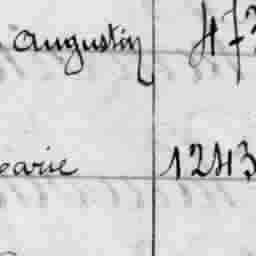 Augustin 473
Marie 1243